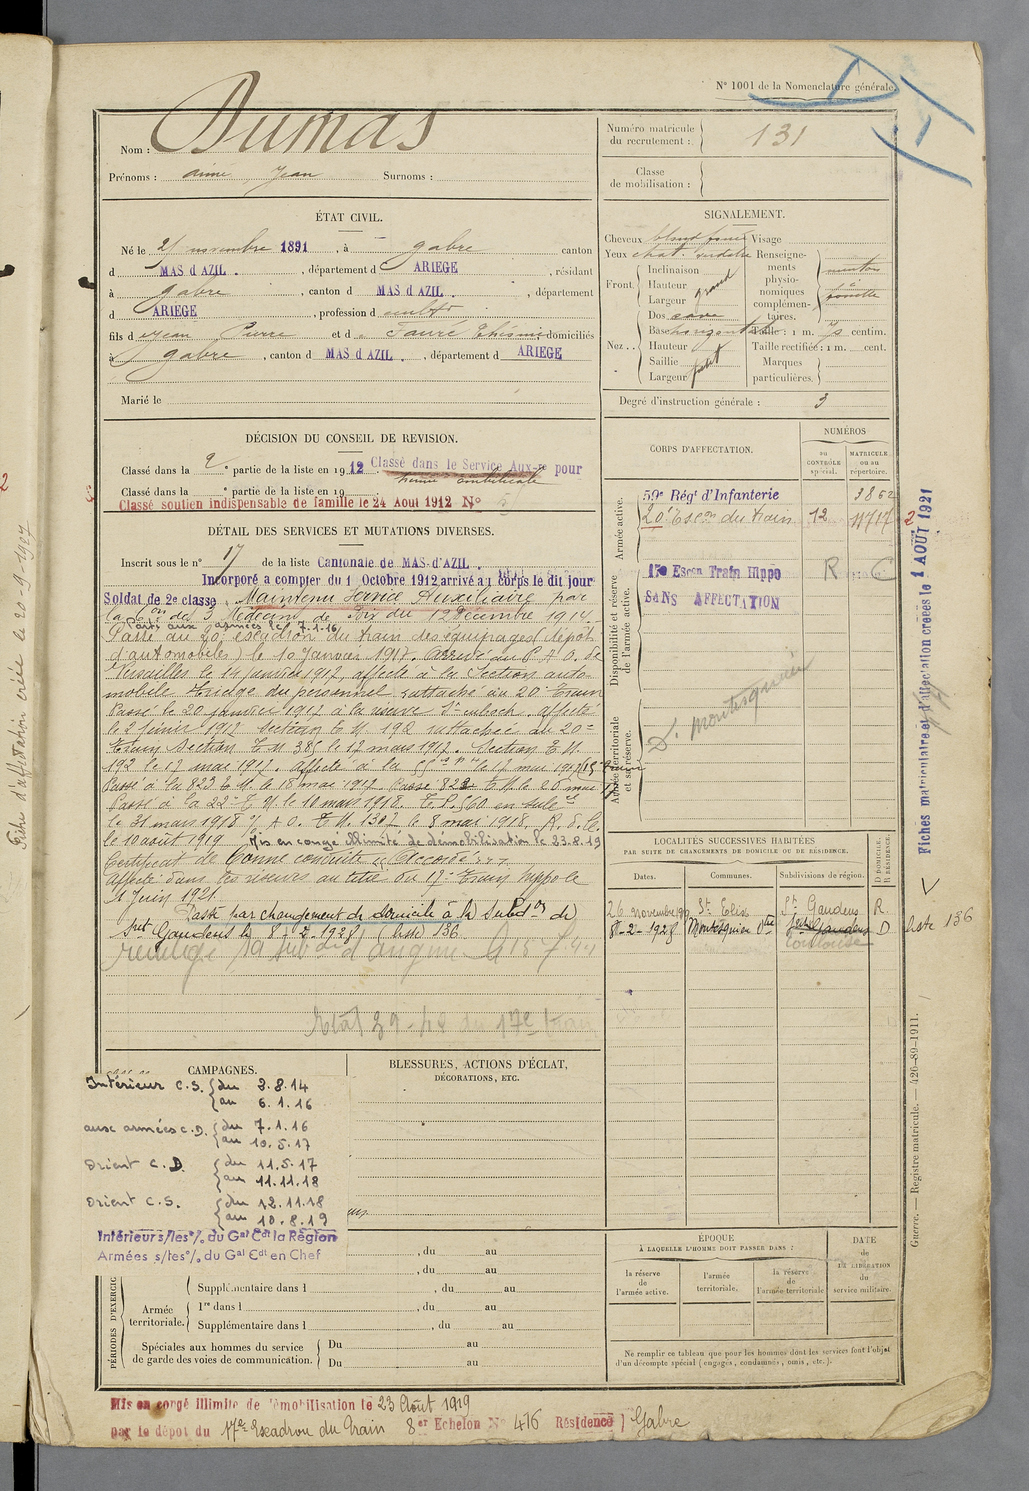 N° 1001 de la Nomenclature générale.
Nom : Dumas
Prénoms : Aimé Jean Surnoms :
Numéro matricule du recrutement : 131
Classe de mobilisation :
ÉTAT CIVIL.
Né le 21 novembre 1891, à Gabre canton
d MAS d'AZIL, département d ARIEGE, résidant
à Gabre, canton d MAS d'AZIL, département
d ARIEGE, profession d cultr
fils d Jean Pierre et d Faure domiciliés
à Gabre, canton d MAS d'AZIL, département d ARIEGE
Marié le
SIGNALEMENT.
Cheveux blond foncé Visage
Yeux chat. verdatre Renseignements physionomiques complémentaires. menton à
Front. Inclinaison
Hauteur grand
Largeur
Nez.. Dos cave
Base horizontale Taille : 1 m. centim.
Hauteur Taille rectifiée : 1 m. cent.
Saillie petit Marques
Largeur particulières.
Degré d'instruction générale : 3
DÉCISION DU CONSEIL DE REVISION.
Classé dans la 2e partie de la liste en 1912 Classé dans le Service Aux-re pour
hernie ombilicale
Classé dans la e partie de la liste en 19
Classé soutien indispensable de famille le 24 Aout 1912 N°
DÉTAIL DES SERVICES ET MUTATIONS DIVERSES.
Inscrit sous le n° 17 de la liste Cantonale de MAS-d'AZIL
Incorporé a compter du 1 Octobre 1912, arrivé au corps le dit jour
Soldat de 2e classe. Maintenu Service Auxiliaire par
la Con des 3 Médecins de Foix du 12 Décembre 1914.
Parti aux armées le 7.1.16
Passé au 20e escadron du train des équipages (dépôt
d'automobiles) le 10 Janvier 1917. Arrivé au P A O. de
Versailles le 14 janvier 1917, affecté à la Section auto-
mobile du personnel rattaché au 20e Train
Passé le 20 janvier 1917 à la réserve affecté
le 2 février 1917 Section T M 192 rattachée au 20e
Train Section T M 385 le 12 mars 1917. Section T M.
192 le 17 mai 1917. Affecté à la
Passé à la 823 T M. le 18 mai 1917 Passé 822 T M. le 26 mai
Passé à la 22e T M. le 10 mars 1918. T.P. 560 en subce
le 31 mars 1918 % A O. T M. 1307 le 8 mai 1918. R. d. C.
le 10 août 1919 Mis en congé illimité de démobilisation le 23.8.19
Certificat de Bonne conduite "Accordé"
Affecté dans les réserves au titre du 17e Train hippo le
1 Juin 1921
Passé par changement de domicile à la Subdon de
St Gaudens le 8-2-1928 (liste) 136
CORPS D'AFFECTATION.
NUMÉROS
au CONTRÔLE spécial. MATRICULE ou au répertoire.
Armée active.
59e Régt d'Infanterie 3862
20e Escon du train 12 11717
Disponibilité et réserve de l'armée active.
17e Escon Train Hippo R
SANS AFFECTATION
Armée territoriale et sa réserve.
D. Montesquieu
LOCALITÉS SUCCESSIVES HABITÉES
PAR SUITE DE CHANGEMENTS DE DOMICILE OU DE RÉSIDENCE.
Dates. Communes. Subdivisions de région. D DOMICILE. R RÉSIDENCE.
26 novembre St Elix St Gaudens R.
8-2-1928 Montesquieu Vtre St Gaudens D
Toulouse
liste 136
Fiches matriculaire et d'affectation créées le 1 AOUT 1921
Fiche d'affectation créée le 20-9-1927
Guerre. — Registre matricule. — 426-89-1911.
CAMPAGNES.
Intérieur C.S. du 3.8.14
au 6.1.16
aux armées C.D. du 7.1.16
au 10.5.17
Orient C.D. du 11.5.17
au 11.11.18
Orient C.S. du 12.11.18
au 10.8.19
Intérieur s/les °/. du Gal Cdt la Région
Armées s/les °/. du Gal Cdt en Chef
BLESSURES, ACTIONS D'ÉCLAT,
DÉCORATIONS, ETC.
PÉRIODES D'EXERCIC
, du au
, du au
Supplémentaire dans l , du au
Armée territoriale. 1re dans l , du au
Supplémentaire dans l , du au
Spéciales aux hommes du service de garde des voies de communication. Du au
Du au
ÉPOQUE
À LAQUELLE L'HOMME DOIT PASSER DANS :
la réserve de l'armée active. l'armée territoriale. la réserve de l'armée territoriale
DATE de LA LIBÉRATION du service militaire.
Ne remplir ce tableau que pour les hommes dont les services font l'objet
d'un décompte spécial (engagés, condamnés, omis, etc.).
Mis en congé illimité de démobilisation le 23 Août 1919
par le dépot du 17e Escadron du Train 8er Echelon N° 416 Résidence Gabre